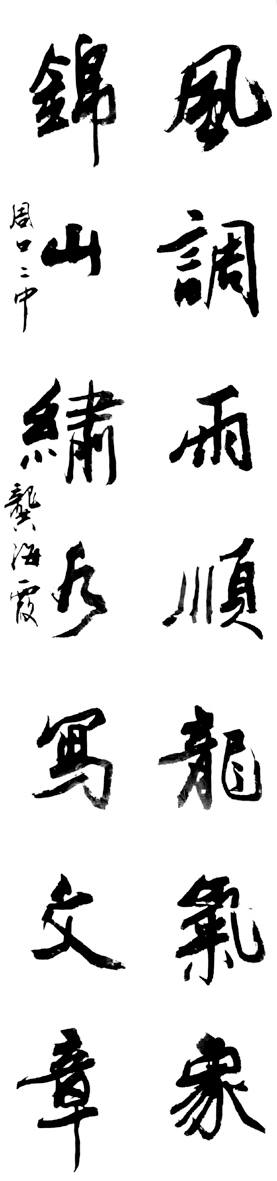 風調雨順龍氣象
錦山繡水寫文章
周口二中
龔海霞